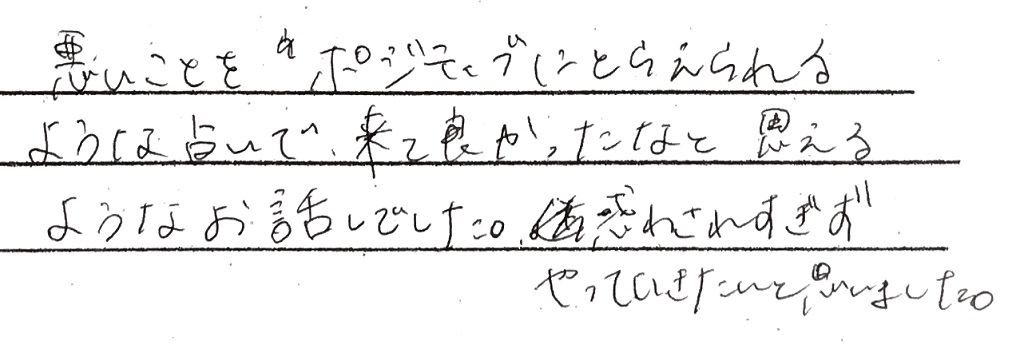 悪いことを ポジティブにとらえられる
ような占いで、来て良かったなと思える
ようなお話しでした。惑わされすぎず
やっていきたいと思いました。